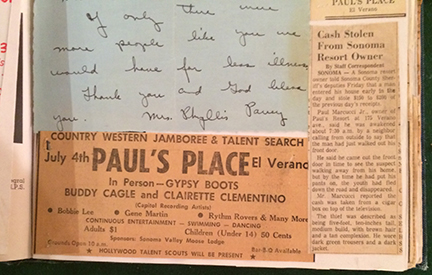 If only there were
more people like you we
would have far less illness
Thank you and God bless
you. Mrs. Phyllis
COUNTRY WESTERN JAMBOREE & TALENT SEARCH
July 4th PAUL'S PLACE El Verano
In Person—GYPSY BOOTS
BUDDY CAGLE and CLAIRETTE CLEMENTINO
(Capitol Recording Artists)
● Bobbie Lee ● Gene Martin ● Rythm Rovers & Many More
CONTINUOUS ENTERTAINMENT — SWIMMING — DANCING
Adults $1 Children (Under 14) 50 Cents
Sponsors: Sonoma Valley Moose Lodge
Grounds Open 10 a.m. Bar-B-Q Available
★ HOLLYWOOD TALENT SCOUTS WILL BE PRESENT ★
PAUL'S PLACE
El Verano
Cash Stolen
From Sonoma
Resort Owner
By Staff Correspondent
SONOMA — A Sonoma resort
owner told Sonoma County sher-
iff's deputies Friday that a man
entered his house early in the
day and stole
the previous day's receipts.
Paul Marcucci Jr., owner of
Paul's Resort at 175 Verano
ave., said he was awakened
about 7:30 a.m. by a neighbor
calling from outside to say that
the man had just walked out his
front door.
He said he came out the front
door in time to see the suspect
walking away from his home,
but by the time he had put his
pants on, the youth had fled
down the road and disap-
peared.
Mr. Marcucci reported the
cash was taken from a cigar
box on top of the television.
The thief was described as
being five-foot, ten-inches tall,
medium build, with brown hair
and a fair complexion. He wore
dark green trousers and a dark
jacket.